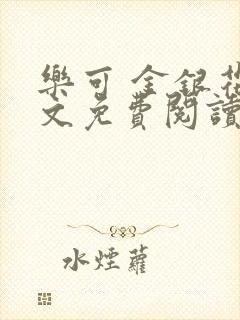 樂可 金銀花
文免費閱讀
水煙蘿